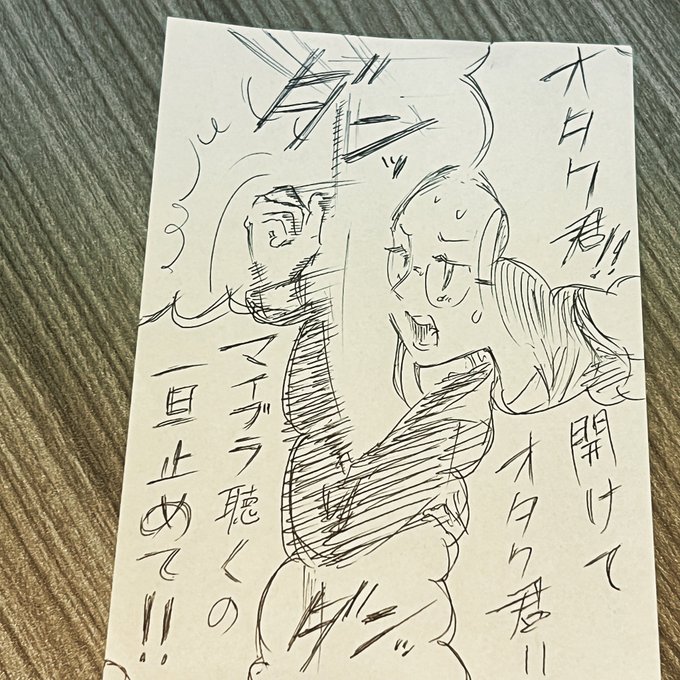 オタク君!!
ダンッ
開けて
オタク君!!
マイブラ聴くの
一旦止めて!!
ダンッ